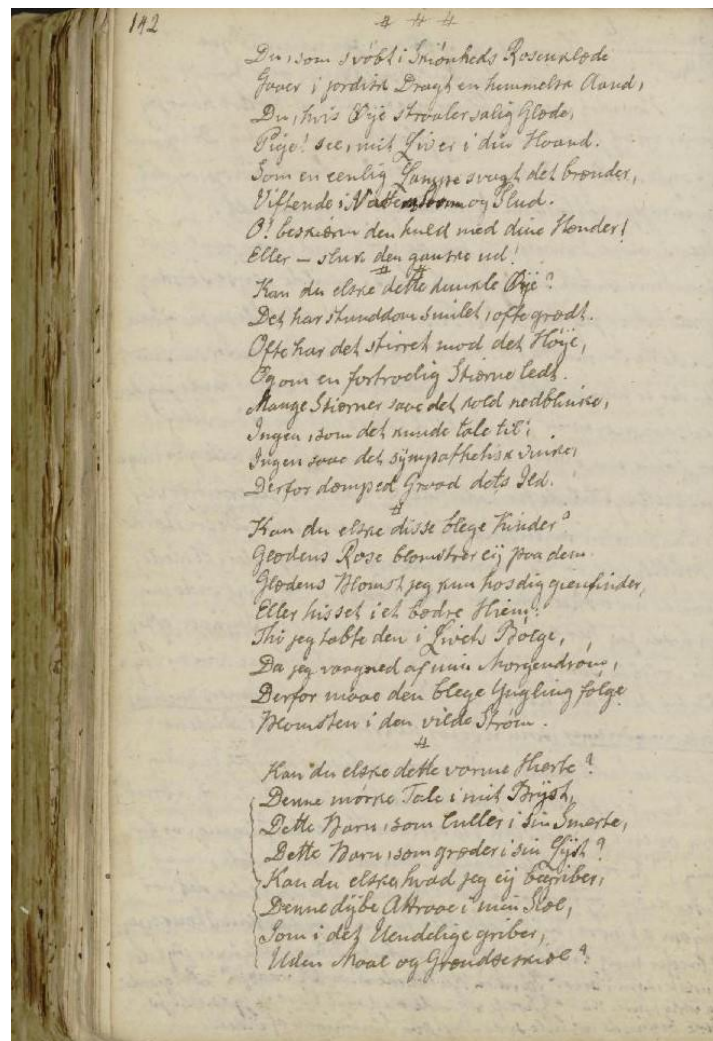 142
# # #
Du, som svöbt i Skiönheds Rosenklæde
Gaaer i jordisk Dragt en himmelsk Aand,
Du, hvis Öije straaler salig Glæde,
Pige! see, mit Liv er i din Haand.
Som en eenlig Lampe svagt det brænder,
Viftende i og Slud.
O! beskiærm den huld med dine Hænder!
Eller – sluk den ganske ud!
# #
Kan du elske dette dunkle Öije?
Det har stunddom smilet, ofte grædt.
Ofte har det stirret mod det Höije,
Og om en fortroelig Stierne ledt.
Mange Stierner saae det kold nedblinke,
Ingen, som det kunde tale til;
Ingen saae det sÿmpathetisk vinke,
Derfor dæmped Graad dets Ild.
#
Kan du elske disse blege Kinder?
Glædens Rose blomstrer eij paa dem.
Glædens Blomst jeg kun hos dig gienfinder,
Eller hisset i et bedre Hiem.
Thi jeg tabte den i Livets Bölge,
Da jeg vaagned af min Morgendröm,
Derfor maae den blege Yngling fölge
Blomsten i den vilde Ström.
#
Kan du elske dette varme Hierte?
Denne mörke Tale i mit Brÿst,
Dette Barn, som luller i sin Smerte,
Dette Barn, som græder i sin Lÿst?
Kan du elske, hvad jeg eij begriber,
Denne dÿbe Attraae i min Siæl,
Som i det Uendelige griber,
Uden Maal og Grændseskiæl?